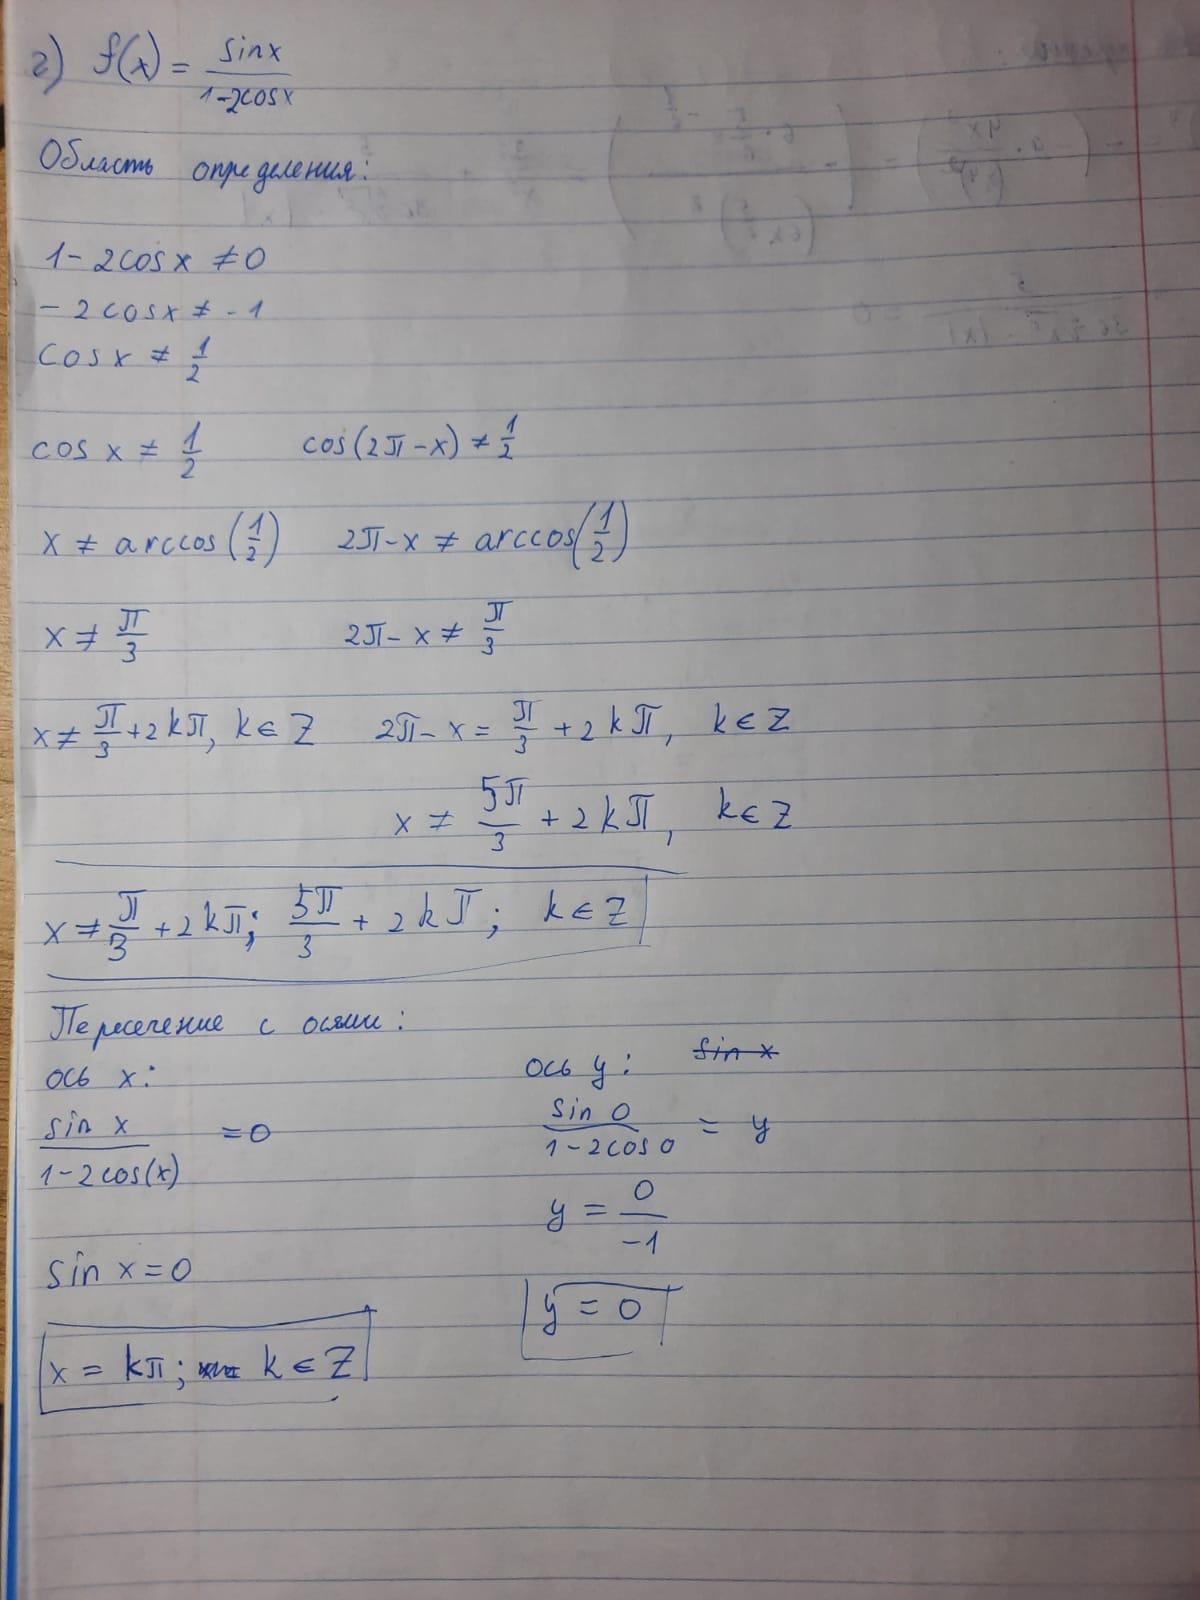 г) f(x) = sinx / 1-2cosx
Область определения:
1 - 2cosx ≠ 0
- 2cosx ≠ -1
cosx ≠ 1/2
cos x ≠ 1/2 cos(2π-x) ≠ 1/2
x ≠ arccos(1/2) 2π-x ≠ arccos(1/2)
x ≠ π/3 2π-x ≠ π/3
x ≠ π/3 + 2kπ, k∈Z 2π-x = π/3 + 2kπ, k∈Z
x ≠ 5π/3 + 2kπ, k∈Z
x ≠ π/3 + 2kπ; 5π/3 + 2kπ; k∈Z
Пересечение с осями:
ось x: ось y: sin x
sin x / 1-2cos(x) = 0 sin 0 / 1-2cos 0 = y
y = 0 / -1
sin x = 0
y = 0
x = kπ; k∈Z